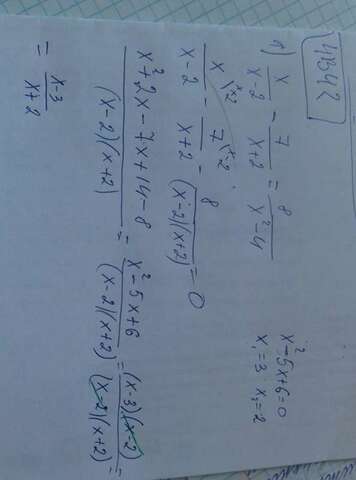 4342
1) x/(x-2) - 7/(x+2) = 8/(x²-4)
x^{x+2}/(x-2) - 7^{x-2}/(x+2) - 8/((x-2)(x+2)) = 0
(x²+2x-7x+14-8)/((x-2)(x+2)) = (x²-5x+6)/((x-2)(x+2)) = ((x-3)(x-2))/((x-2)(x+2)) =
= (x-3)/(x+2)
x²-5x+6=0
x₁=3 x₂=2